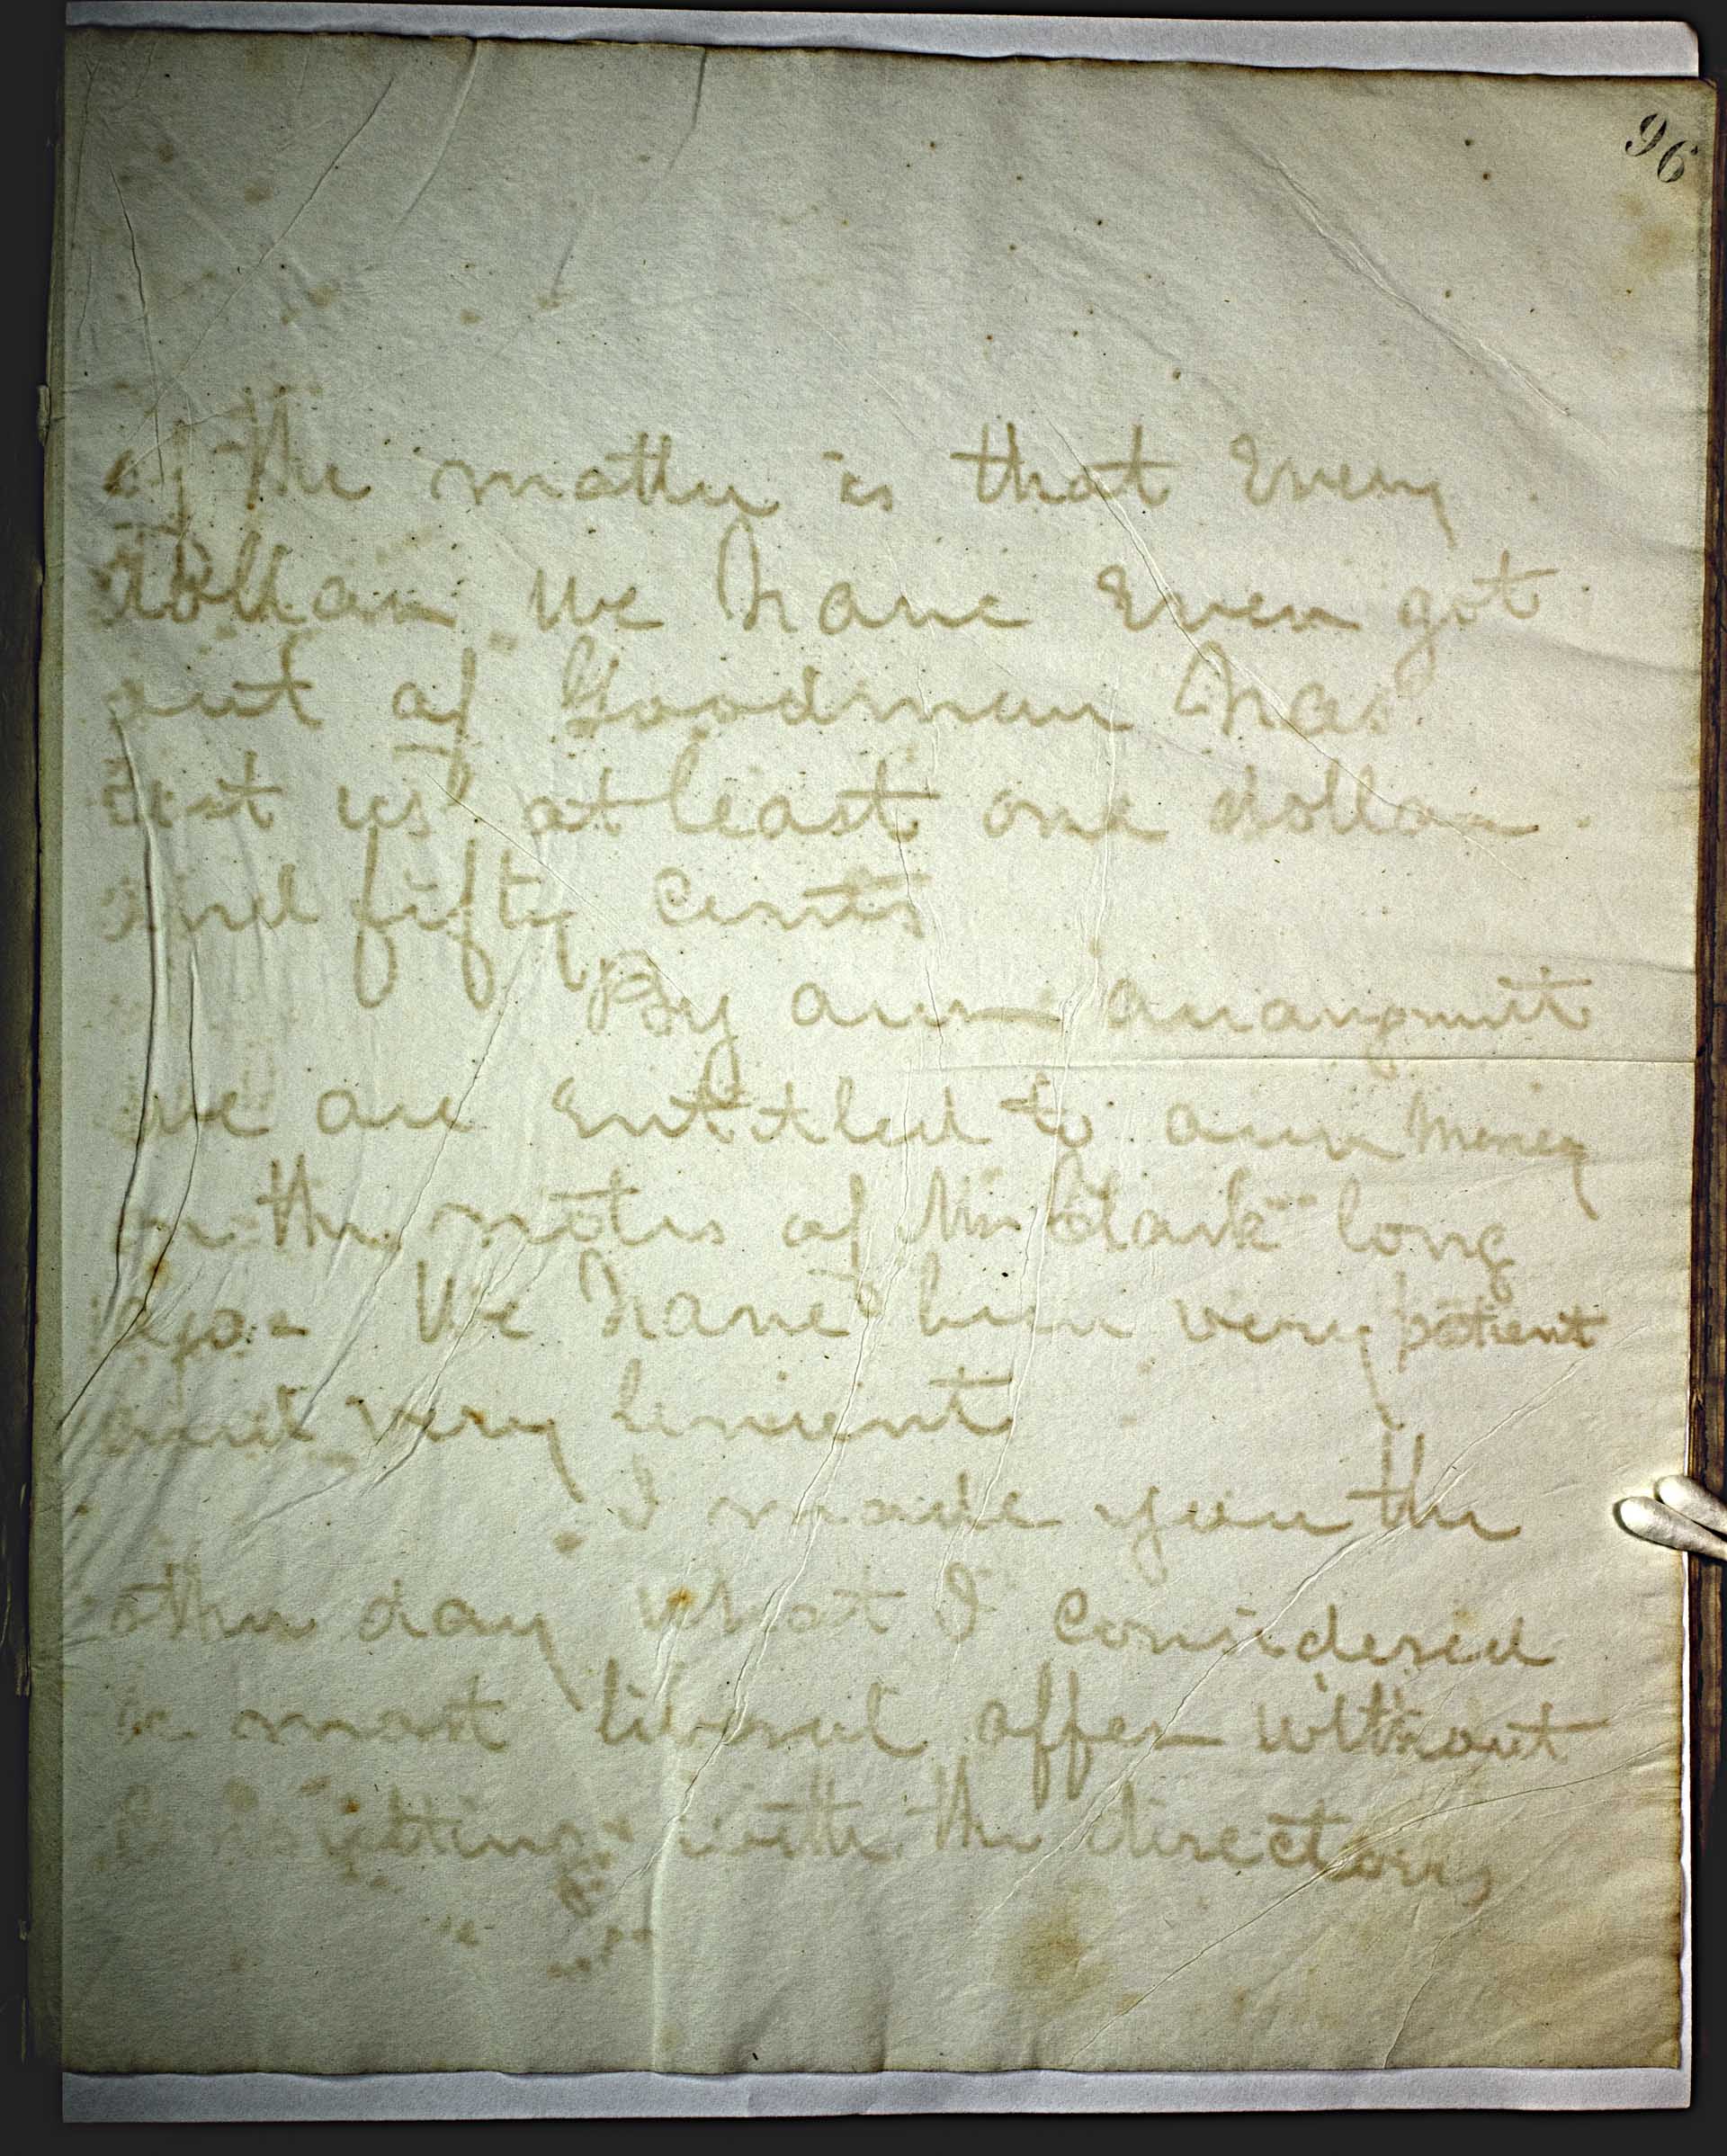 96
of the matter is that Every
dollar We have Ever got
out of Goodman has
cost us at least one dollar
and fifty Cents
By our arrangmnt
we are Entitled to our Money
on the notes of Mr Clark long
ago - We have been very patient
and very lenient
I made you the
other day what I Considered
a most liberal offer without
with the directors,